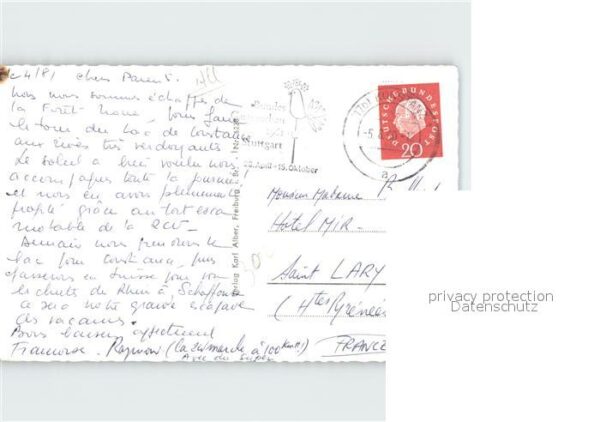 4/8/ Chers Parents.
nous nous sommes échappés de
la Forêt Noire, pour faire
le tour du Lac de Constance
aux rives très verdoyantes
Le soleil a bien voulu nous
accompagner toute la journée
et nous en avons pleinement
profité grâce au toit
de la
Demain nous prendrons le
bac pour Constance, puis
passerons en Suisse pour voir
les chutes du Rhin à Schaffouse
ce sera notre grande escapade
des vacances.
Bons baisers affectueux
Françoise. Raymond (la 2CV marche à 100 km/h!)
Avec du Super
Verlag Karl Alber, Freiburg i. Br.
Stuttgart
April - 15. Oktober
DEUTSCHE BUNDESPOST
20
a
Monsieur Madame
Hôtel MIR -
Saint LARY
(Htes Pyrénées
FRANCE
privacy protection
Datenschutz